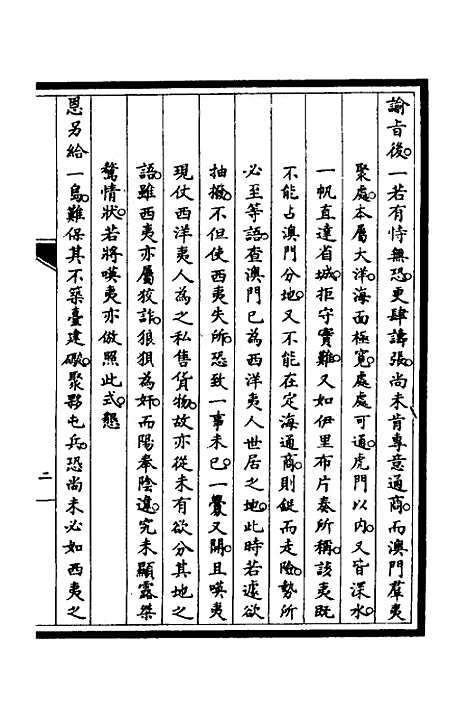 諭旨後。一若有恃無恐。更肆譸張。尚未肯專意通商。而澳門羣夷
聚處。本屬大洋。海面極寬。處處可通。虎門以內。又皆深水。
一帆直達省城。拒守實難。又如伊里布片奏所稱。該夷既
不能占澳門分地。又不能在定海通商。則鋌而走險。勢所
必至等語。查澳門已為西洋夷人世居之地。此時若遽欲
抽撥。不但使西夷失所。恐致一事未已。一釁又開。且㗗夷
現仗西洋夷人為之私售貨物。故亦從未有欲分其地之
語。雖西夷亦屬狡詐。狼狽為奸。而陽奉陰違。究未顯露桀
驁情狀。若將㗗夷亦倣照此式。懇
恩另給一島。難保其不築臺建礮。聚夥屯兵。恐尚未必如西夷之
二